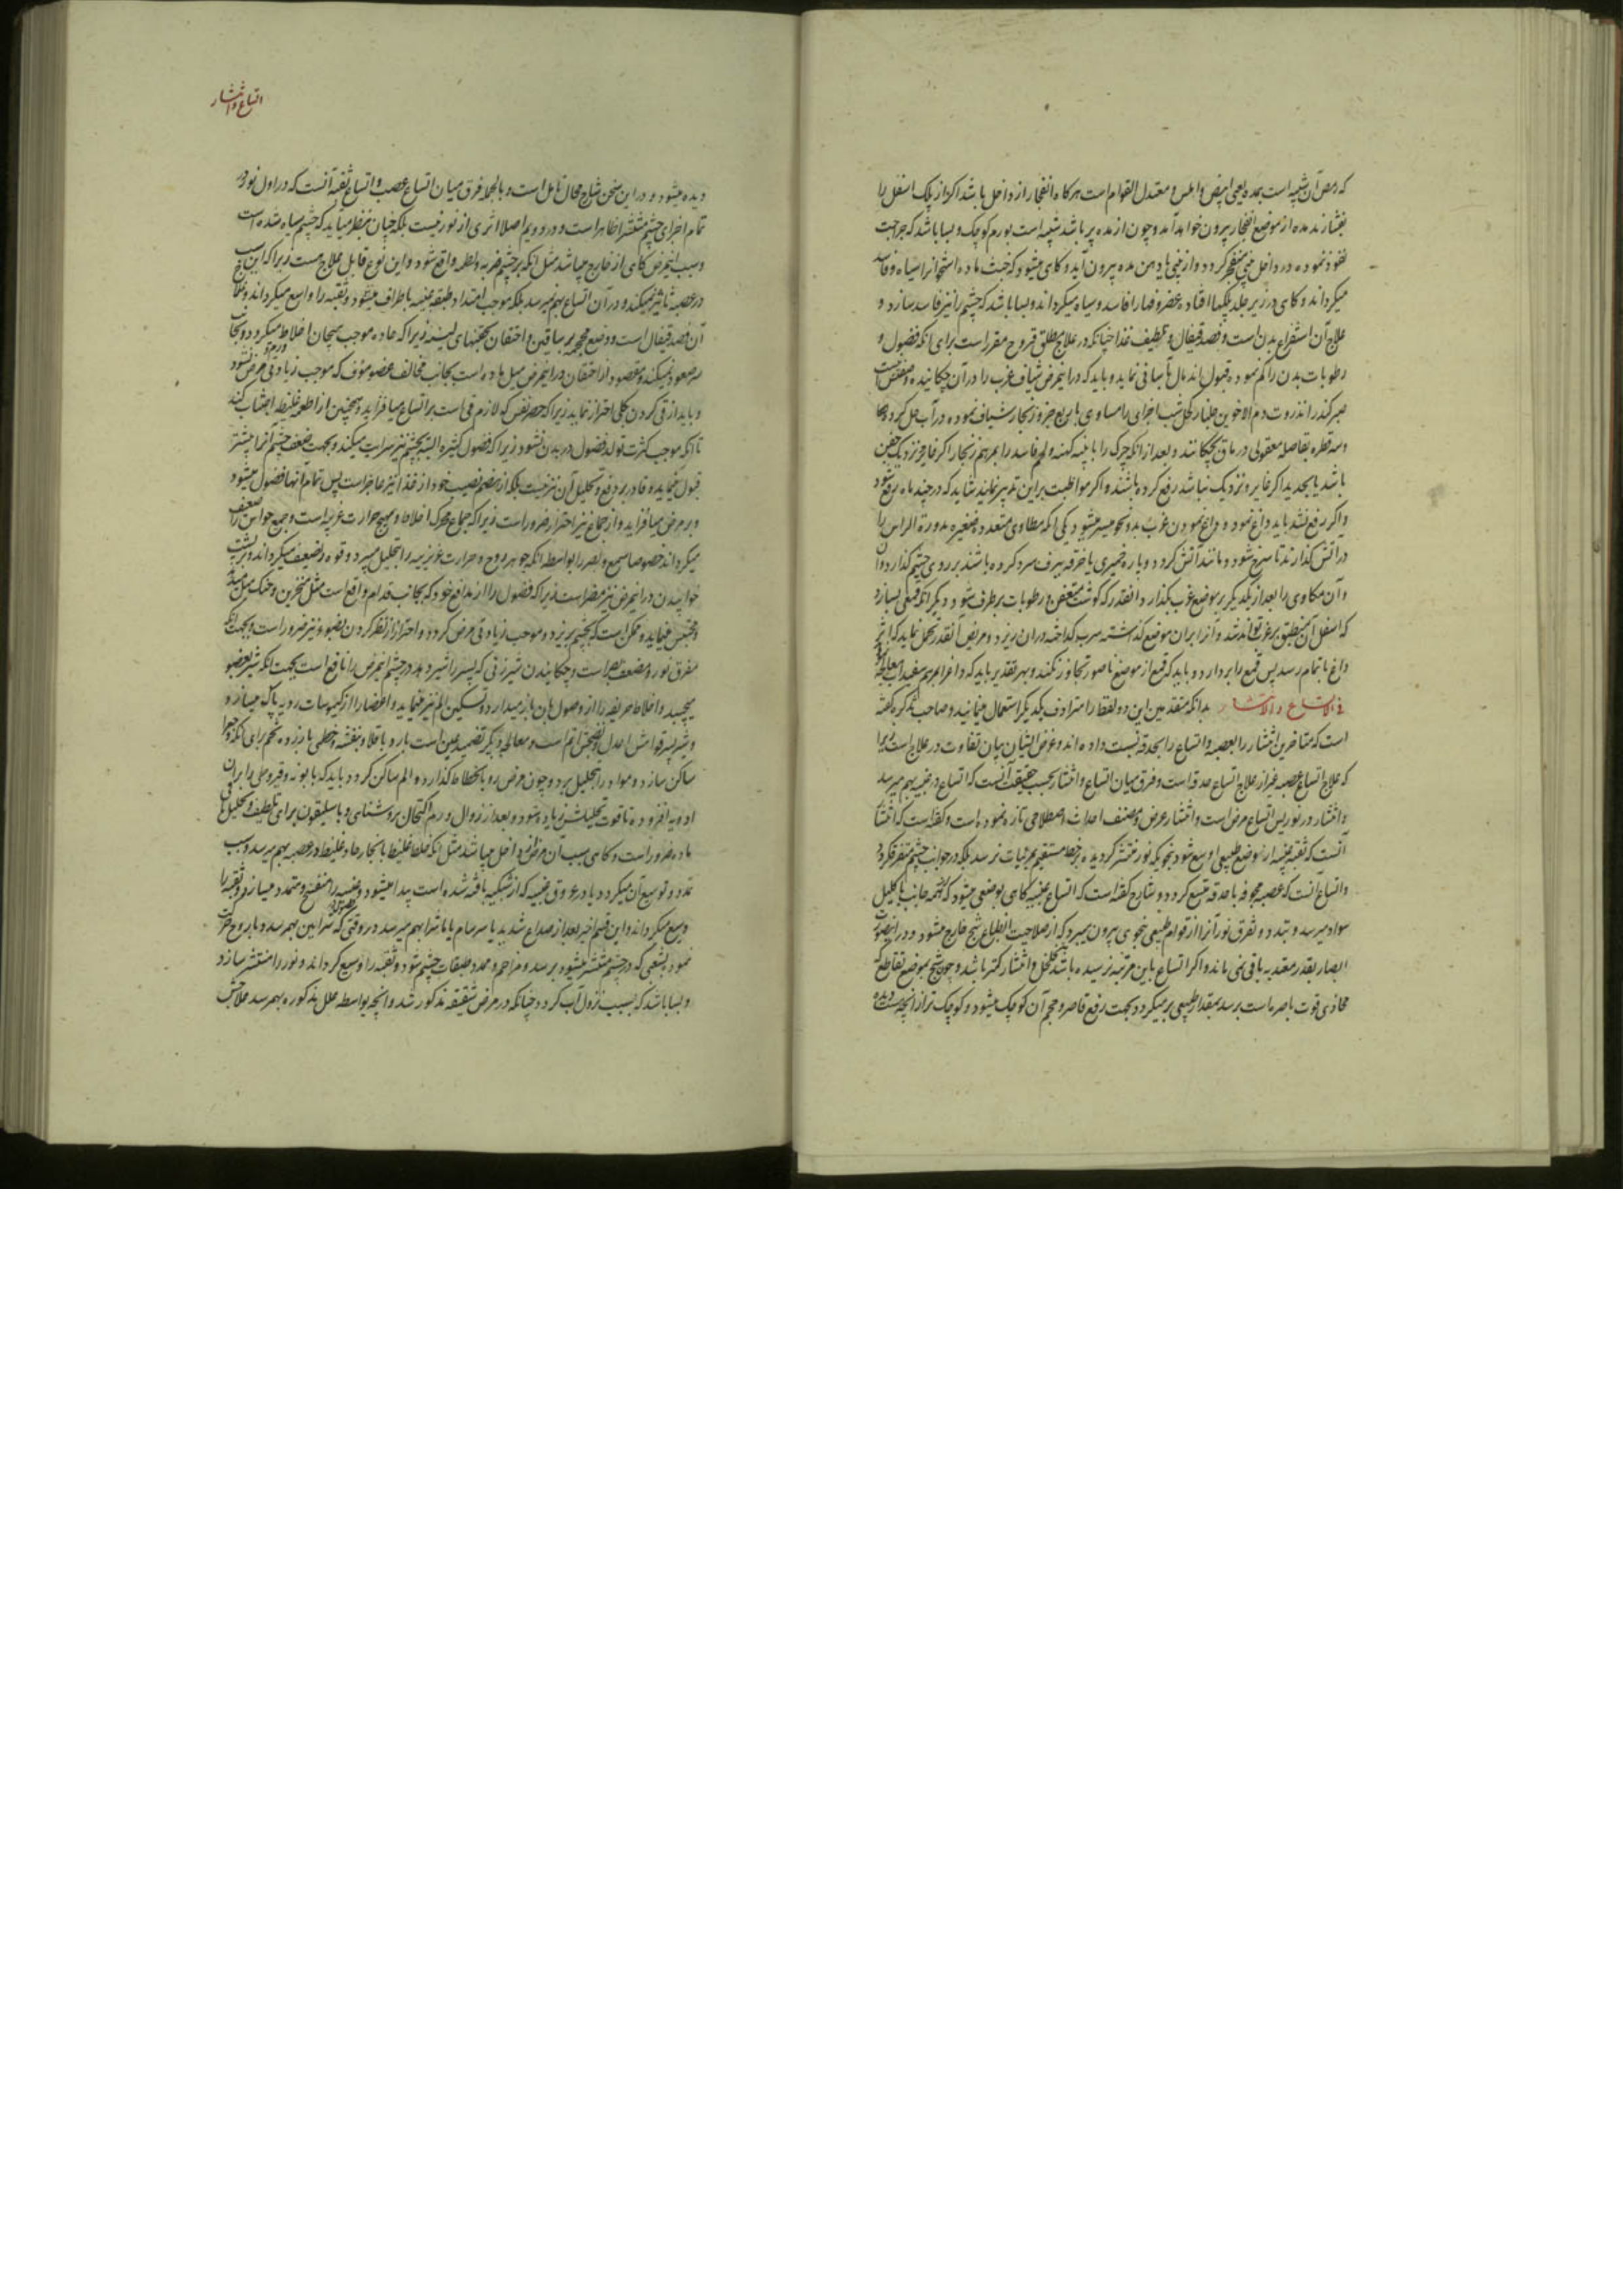 که رمص آن شبیه است بمده یعنی ابیض و املس و معتدل القوام است هرگاه انفجار از داخل باشد اگر از پلک اسفل را
بفشارند مده از موضع انفجار بیرون خواهد آمد و چون از مده پر باشد شبیه است بورم کوچک و بسا باشد که جراحت
نفوذ نموده در داخل بینی منفجر گردد و از بینی یا دهن مده بیرون آید و گاهی میشود که خبث ماده استخوانرا سیاه و فاسد
میگرداند و گاهی در زیر جلد پلکها افتاده غضروفها را فاسد و سیاه میگرداند و بسا باشد که چشم را نیز فاسد سازد و
علاج آن استفراغ بدن است و فصد قیفال و تلطیف غذا چنانکه در علاج مطلق قروح مقرر است برای آنکه فضول و
رطوبات بدن را کم نموده قبول اندمال بآسانی نماید و باید که در این مرض شیاف غرب را در آن چکانیده
صبر کندر انزروت دم الاخوین جلنار کحل شب اجزای مساوی با ربع جزو زنجار شیاف نموده در آب حل کرده
و سه قطره بفاصله معقولی در ماق بچکانند و بعد از آنکه چرک را با پنبه کهنه و لحم فاسد را بمرهم زنجار اگر نزدیک
باشد یا بحدید اگر غایر و نزدیک نباشد رفع کرده باشند و اگر مواظبت بر این تدبیر نمایند شاید که در چند ماه برفع شود
و اگر رفع نشد باید داغ نمود و داغ نمودن غرب بدو نحو میسر میشود یکی آنکه مکاوی متعدد صغیره مدورة الراس را
در آتش گذارند تا سرخ شود و مانند آتش گردد و پاره خمیری یا خرقه ببرف سرد کرده باشند بر روی چشم گذارد
و آن مکاوی را بعد از یکدیگر بر موضع غرب گذارد آنقدر که گوشت متعفن و رطوبات برطرف شود و دیگر آنکه قمعی بسازد
که اسفل آن منطبق بر غرب تواند شد و آنرا بر آن موضع گذاشته سرب گداخته در آن ریزد و مریض آنقدر تحمل نماید که اثر
داغ باتمام رسد پس قمع را بردارد و باید که قمع از موضع ناصور تجاوز نکند و بهر تقدیر باید که داغ را بمرهم سفیداب معالجه
فی الاتساع و الانتشار بدانکه متقدمین این دو لفظ را مترادف یکدیگر استعمال مینمایند و صاحب تذکره گفته
است که متاخرین انتشار را بعصبه و اتساع را بحدقه نسبت داده اند و غرض ایشان بیان تفاوت در علاج است زیرا
که علاج اتساع عصبه غیر از علاج اتساع حدقه است و فرق میان اتساع و انتشار بحسب حقیقت آنست که اتساع در عنبیه بهم میرسد
و انتشار در نور پس اتساع مرض است و انتشار عرض و مصنف احداث اصطلاحی تازه نموده است و گفته است که انتشار
آنست که ثقبه عنبیه از موضع طبیعی اوسع شود بنحویکه نور منتشر گردیده بر خط مستقیم بمرئیات نرسد بلکه در جوانب چشم متفرق گردد
و اتساع آنست که عصبه مجوفه با حدقه متسع گردد و شارح گفته است که اتساع عنبیه گاهی بوضعی میشود که از همه جانب باکلیل
سواد میرسد و تبدد و تفرق نور آنرا از قوام طبیعی بنحوی بیرون میبرد که از صلاحیت انطباع شبح خارج میشود و در اینصورت
ابصار بقدر معتد به باقی نمی ماند و اگر اتساع باین مرتبه نرسیده باشد تخلخل و انتشار کمتر باشد و چون شبح بموضع تقاطع که
محاذی قوت باصره است برسد بمقدار طبیعی برمیگردد بجهت رفع قاصر و حجم آن کوچک میشود و کوچک تر از آنچه هست دیده
اتساع و انتشار
دیده میشود و در این سخن شارح محال تامل است و بالجمله فرق میان اتساع عصب و اتساع ثقبه آنست که در اول نور در
تمام اجزای چشم منتشر ظاهر است و در دویم اصلا اثری از نور نیست بلکه چنان بنظر میآید که چشم سیاه شده است
و سبب این مرض گاهی از خارج میباشد مثل آنکه بر چشم ضربه و لطمه واقع شود و این نوع قابل علاج هست زیرا که این سبب
در عصبه تاثیر نمیکند و در آن اتساع بهم نمیرسد بلکه موجب امتداد طبقه عنبیه باطراف میشود و ثقبه را واسع میگرداند و علاج
آن فصد قیفال است و وضع محجمه بر ساقین و احتقان بحقنهای لینه زیرا که حاده موجب هیجان اخلاط میگردد و بجانب
سر صعود میکند و مقصود از احتقان در این مرض میل ماده است بجانب مخالف عضو مؤوف که موجب زیادتی مرض نشود
و باید از قی کردن بکلی احتراز نماید زیرا که حصر نفس که لازم قی است بر اتساع میافزاید و همچنین از اطعمه غلیظه اجتناب کنند
تا آنکه موجب کثرت تولد فضول در بدن نشود زیرا که فضول کثیره البته بچشم نیز سرایت میکند و بجهت ضعف چشم آنرا بیشتر
قبول مینماید و قادر بر دفع و تحلیل آن نیز نیست بلکه از هضم نصیب خود از غذا نیز عاجز است پس تمام آنها فضول میشود
و بر مرض میافزاید و از جماع نیز احتراز ضرور است زیرا که جماع محرک اخلاط و مهیج حرارت غریبه است و جمیع حواس را ضعیف
میگرداند خصوصا سمع و بصر را بواسطه آنکه جوهر روح و حرارت غریزیه را بتحلیل میبرد و قوه را ضعیف میگرداند و بر پشت
خوابیدن در این مرض نیز مضر است زیرا که فضول را از مدافع خود که بجانب قدام واقع است مثل منخرین و حنک
محتبس مینماید و ممکن است که بچشم بریزد و موجب زیادتی مرض گردد و احتراز از نظر کردن بضوء نیز ضرور است بجهت آنکه
مفرق نور و مضعف بصر است و چکانیدن شیر زنی که پسر را شیر دهد در چشم این مرض را نافع است بجهت آنکه شیر بعضو
میچسبد و اخلاط حریفه را از وصول بآن باز میدارد و تسکین الم نیز مینماید و اعضا را از کیموسات ردیه پاک میسازد و
و شیر پسر قوامش اعدل و نضجش اتم است و معالجه دیگر تضمید عین است بارد باقلا و بنفشه و خطمی با زرده تخم برای آنکه
ساکن سازد و مواد را بتحلیل برد و چون مرض رو بانحطاط گذارد و الم ساکن گردد باید که بابونه و قیروطی را بر آن
ادویه افزوده تا قوت تحلیلش زیاده شود و بعد از زوال ورم اکتحال بروشنائی و باسلیقون برای تلطیف و تحلیل باقی
ماده ضرور است و گاهی سبب آن مرض از داخل میباشد مثل آنکه خلط غلیظ یا بخار حاد غلیظ در عصبه بهم میرسد و سبب
تمدد و توسیع آن میگردد یا در عروق عنبیه که از شبکیه بافته شده است پیدا میشود و عنبیه را منتفخ و متمدد میسازد و ثقبه را
وسیع میگرداند و این قسم اخیر بعد از صداع شدید یا سرسام یا ماشرا بهم میرسد در وقتی که شرایین بهم رسد و با روح حرکت
نمود بشعبی که در چشم منتشر میشود برسد و مزاحم و ممدد طبقات چشم شود و ثقبه را وسیع گرداند و نور را منتشر سازد
و بسا باشد که بسبب نزول آب گردد چنانکه در مرض شقیقه مذکور شد و آنچه بواسطه علل مذکوره بهم رسد علاجش